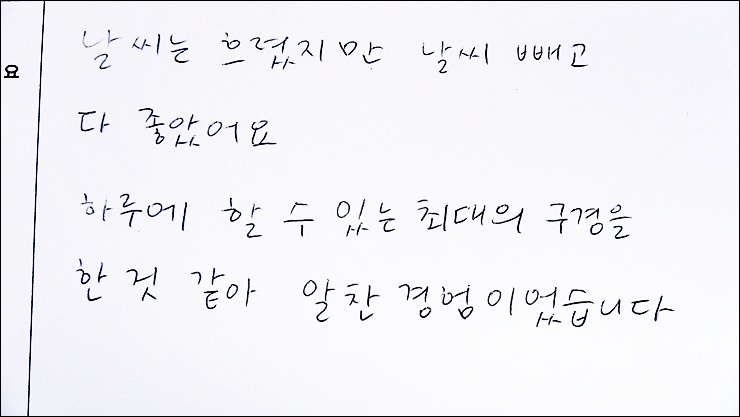 요
날씨는 흐렸지만 날씨 빼고
다 좋았어요
하루에 할 수 있는 최대의 구경을
한 것 같아 알찬 경험이었습니다